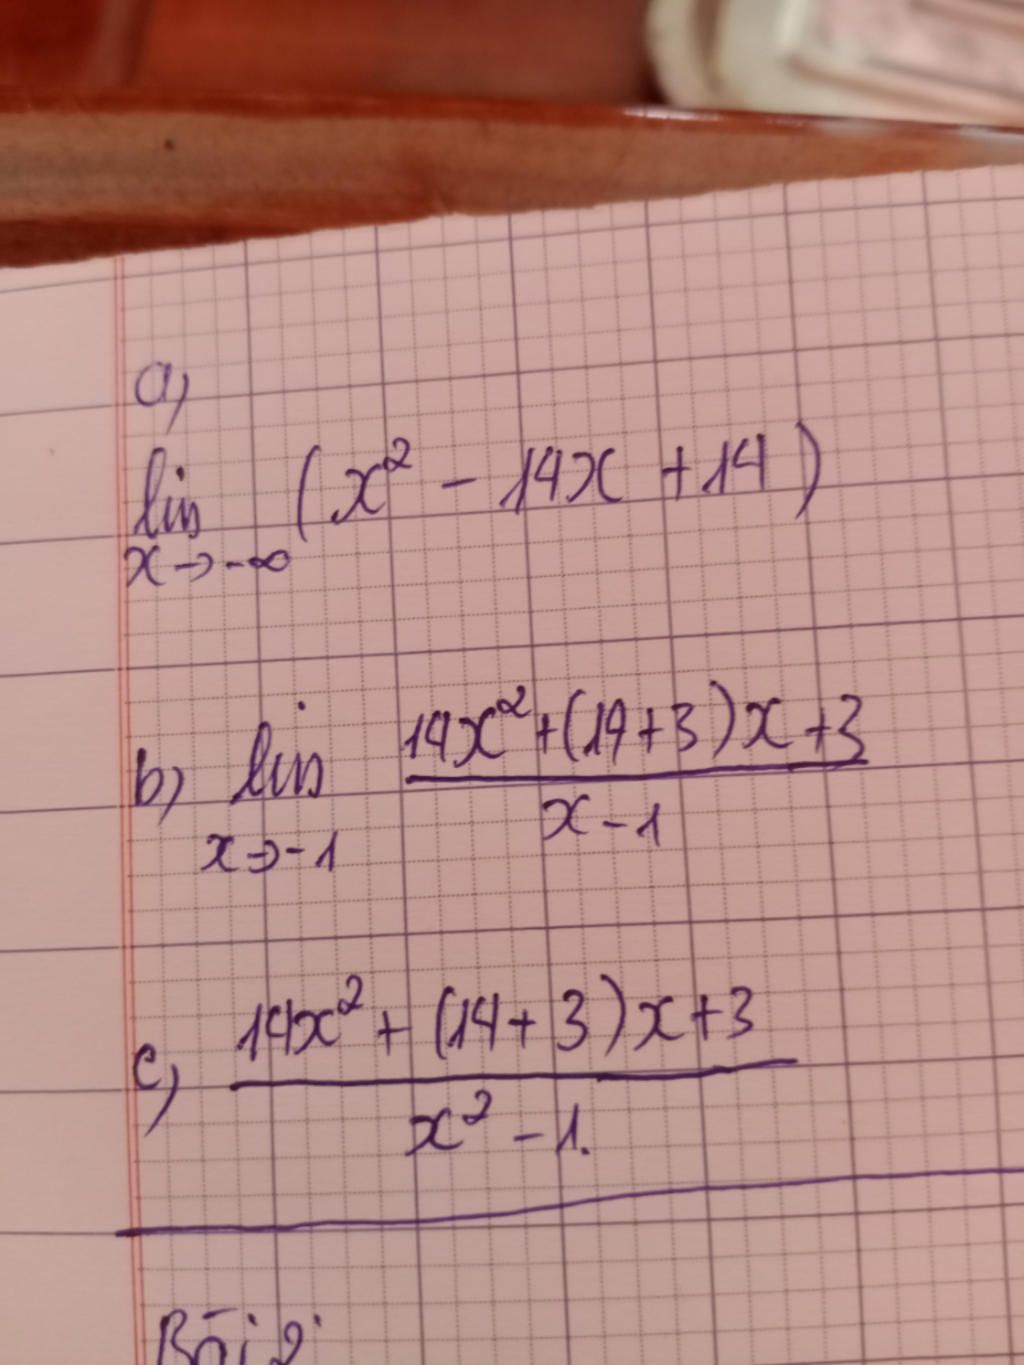 a)
lim (x² - 14x + 14)
x → -∞
b) lim 14x² + (14 + 3)x + 3
x → -1 x - 1
c) 14x² + (14 + 3)x + 3
x² - 1.
Bài 2: